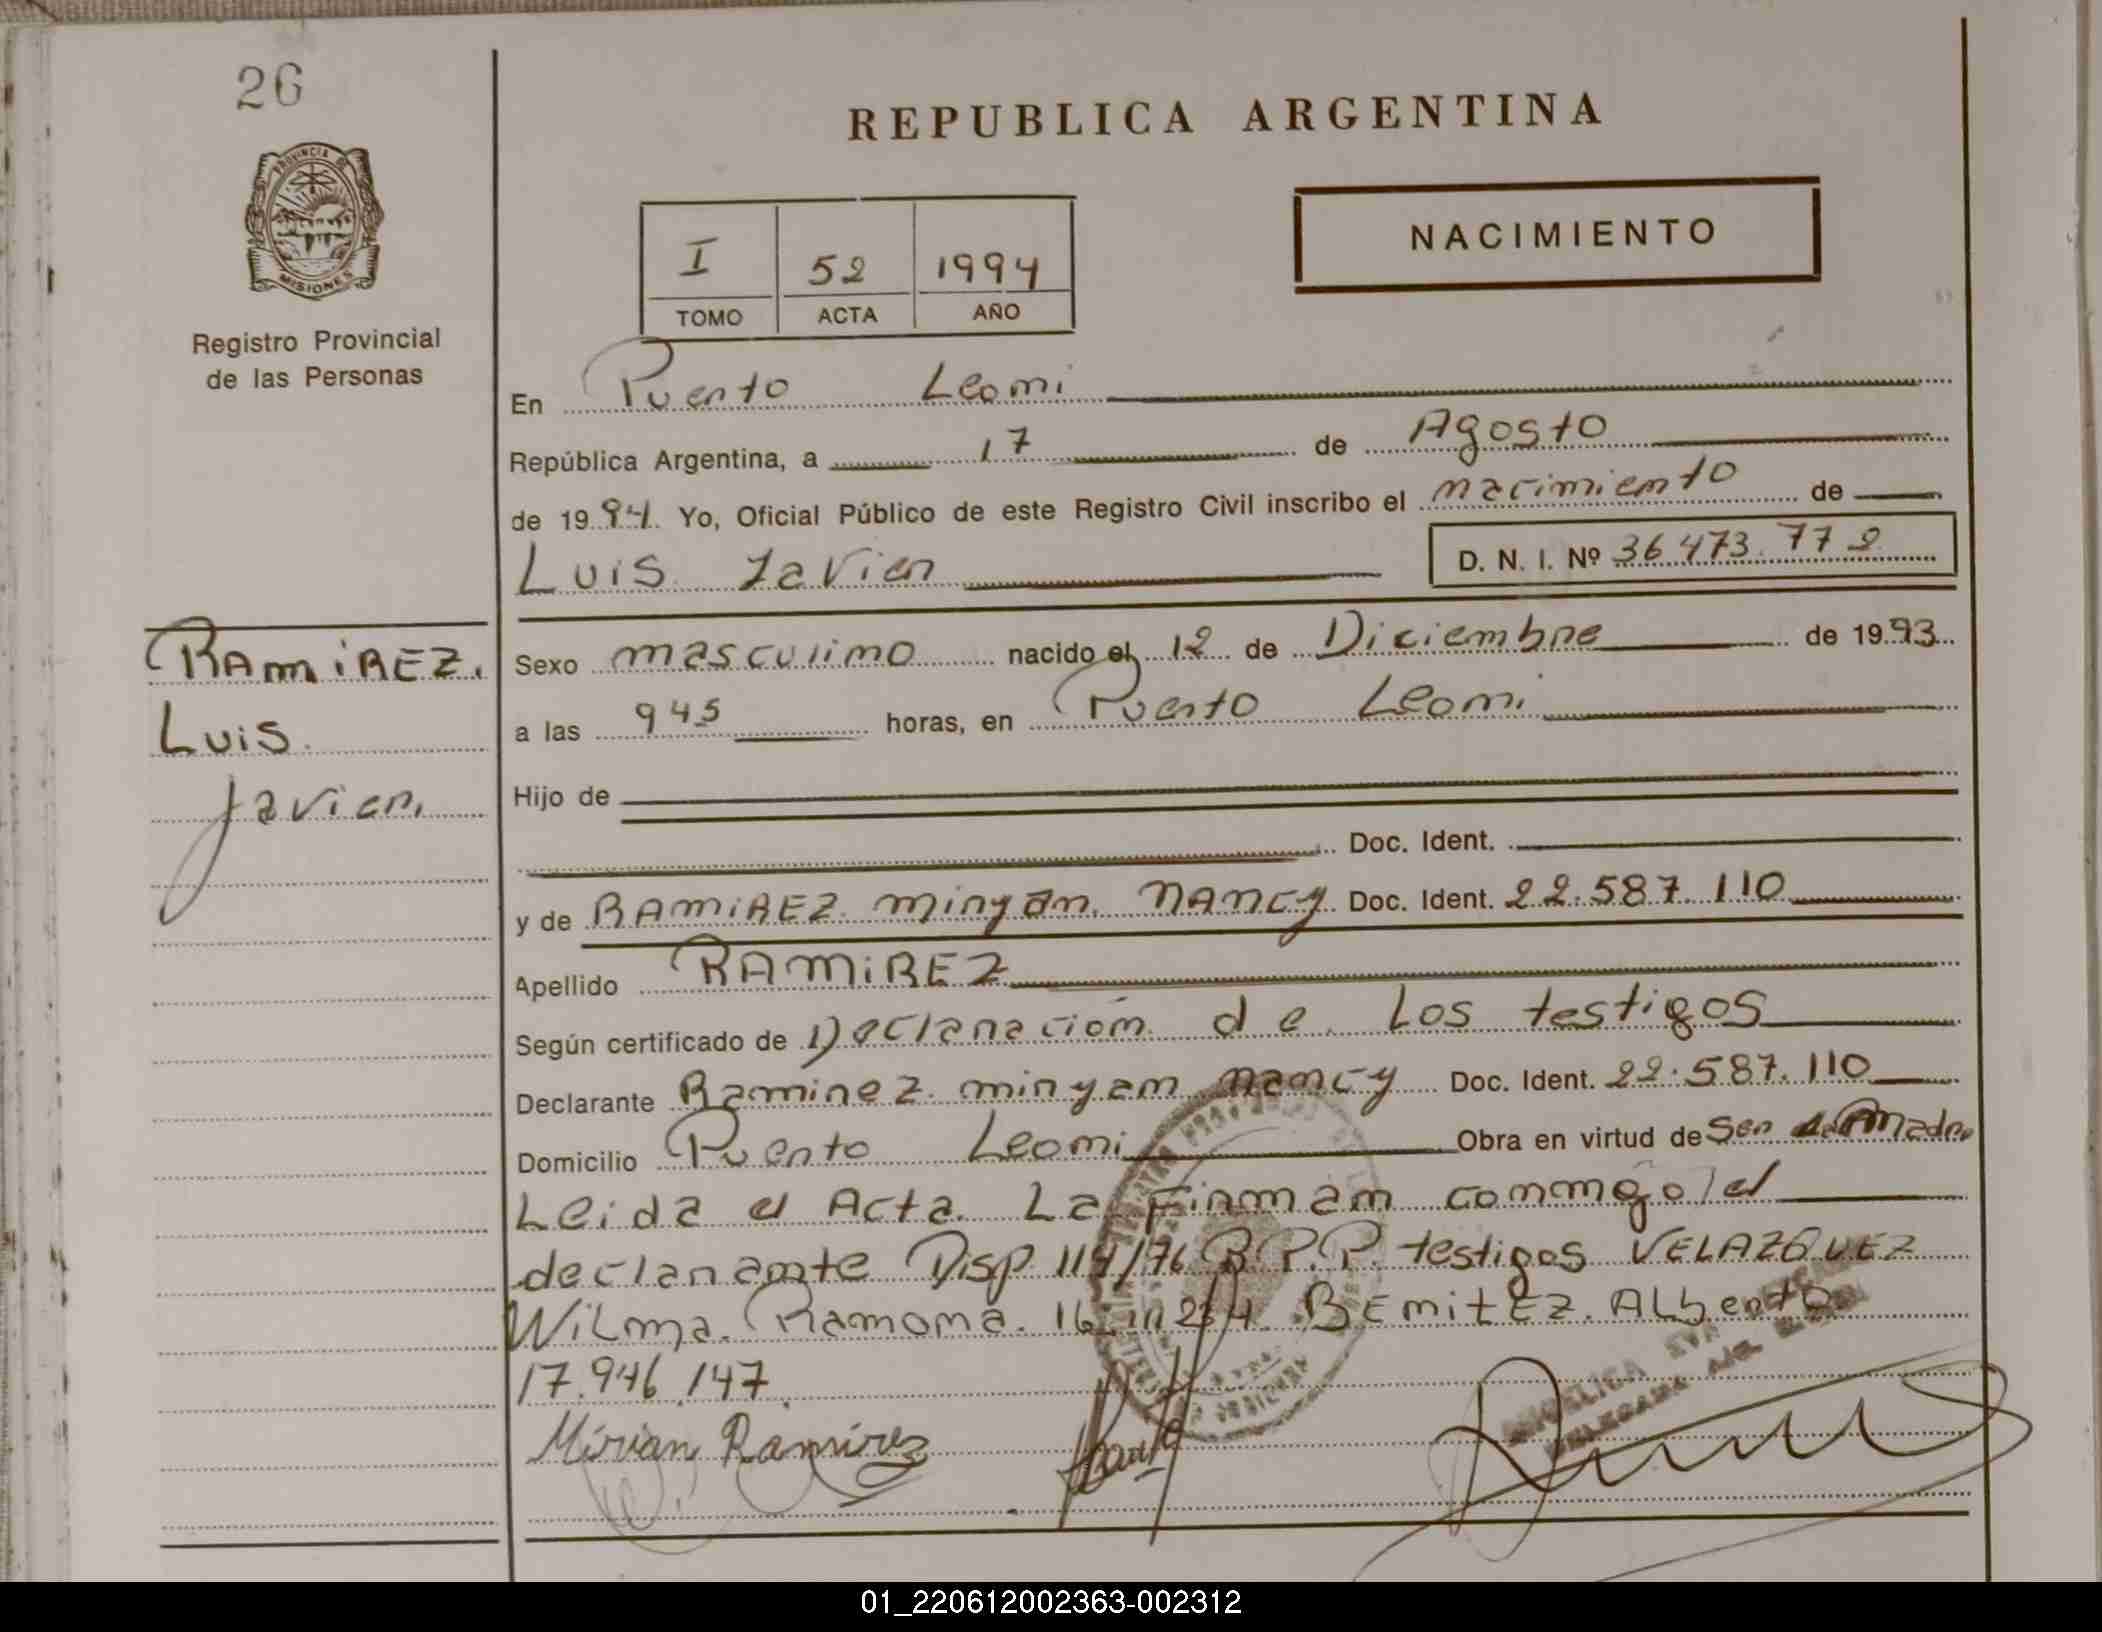 26
PROVINCIA DE
MISIONES
Registro Provincial
de las Personas
RAMIREZ.
Luis
Javier
REPUBLICA ARGENTINA
NACIMIENTO
I 52 1994
TOMO ACTA AÑO
En Puerto Leoni
República Argentina, a 17 de Agosto
de 1994. Yo, Oficial Público de este Registro Civil inscribo el nacimiento de
Luis Javier D. N. I. Nº 36.473.772
Sexo masculino nacido el 12 de Diciembre de 1993
a las 945 horas, en Puerto Leoni
Hijo de
Doc. Ident.
y de RAMIREZ miryan NANCY Doc. Ident. 22.587.110
Apellido RAMIREZ
Según certificado de Declaracion de Los testigos
Declarante Ramirez miryam nancy Doc. Ident. 22.587.110
Domicilio Puerto Leoni Obra en virtud de Ser Madre
Leida el Acta La Firman conmigo el
declarante Disp 114/76 R.P.P. testigos VELAZQUEZ
Wilma Ramona. BENITEZ. Alberto
17.946.147
Mirian Ramirez
ANGELICA EVA
DELEGADA
01_220612002363-002312